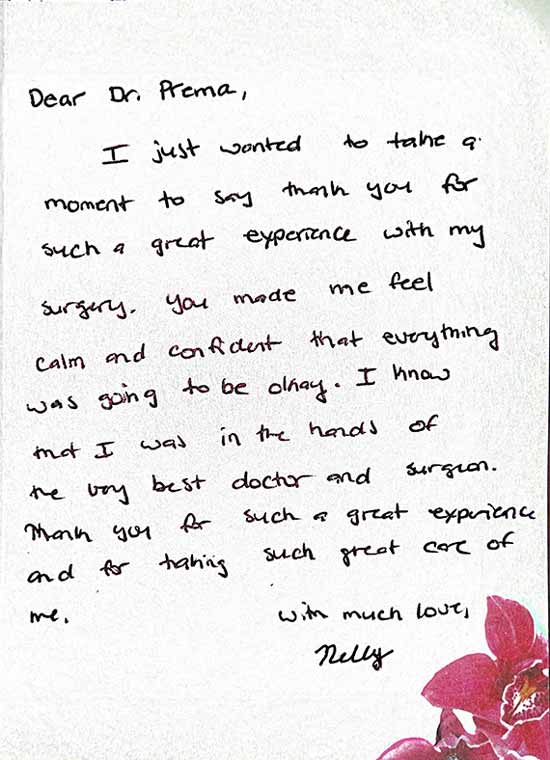 Dear Dr. Prema,
I just wanted to take a
moment to say thank you for
such a great experience with my
surgery. You made me feel
calm and confident that everything
was going to be okay. I know
that I was in the hands of
the very best doctor and surgeon.
Thank you for such a great experience
and for taking such great care of
me.
with much love,
Nelly